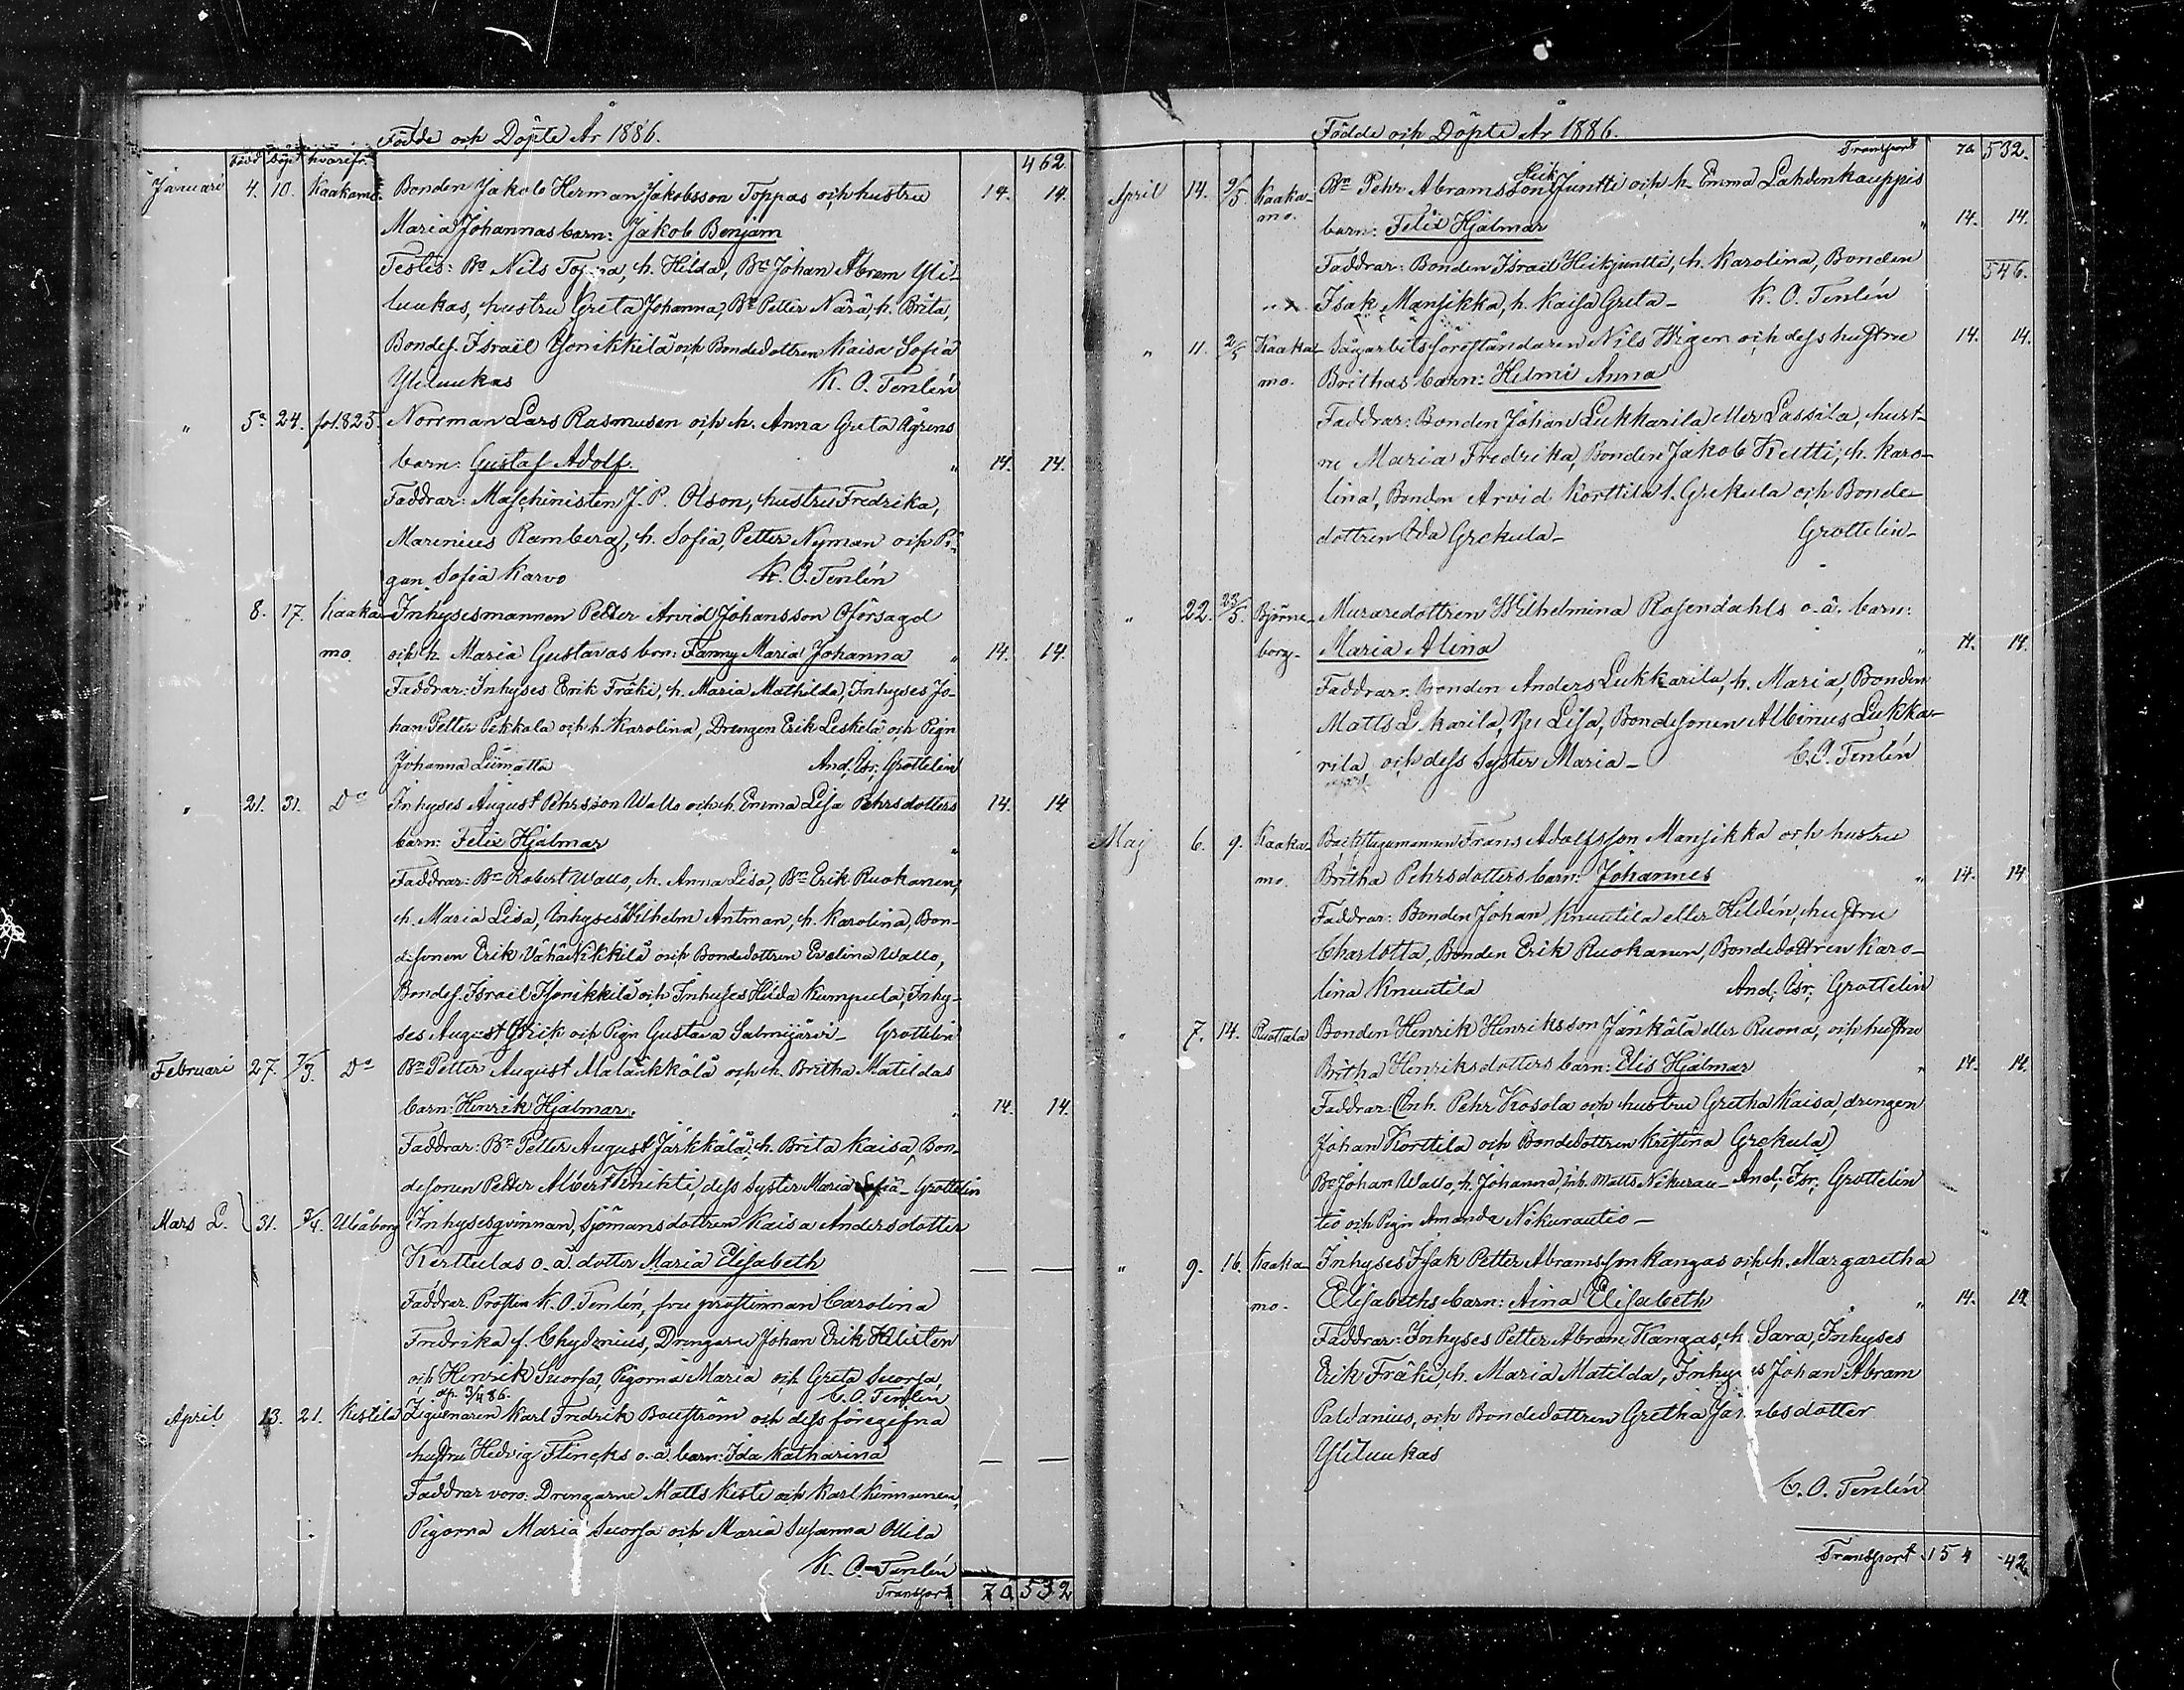 Födde och Döpte År 1886.
född döpt hvarifr. 462.
Januari 4. 10. Kaakamo. Bonden Jakob Herman Jakobsson Toppas och hustru 14. 14.
Maria Johannas barn: Jakob Benjam
Testes: Bn Nils Toppa, h. Hilda, Bn Johan Abram Yli-
luukas, hustru Greta Johanna, Bn Petter Närä, h. Brita,
Bondes. Israel Isonikkilä och Bondedottren Kaisa Sofia
Yliluukas K. O. Tenlén
" 5. 24. fol. 825. Norrman Lars Rasmusen och h. Anna Greta Ågrens
barn: Gustaf Adolf. " 14. 14.
Faddrar: Maschinisten J. P. Olson, hustru Fredrika,
Marenius Ramberg, h. Sofia, Petter Nyman och Pi-
gan Sofia Karvo K. O. Tenlén
8. 17. Kaaka- Inhysesmannen Petter Arvid Johansson Oförsagd
mo. och h. Maria Gustavas brn: Fanny Maria Johanna " 14. 14.
Faddrar: Inhyses Erik Fräki, h. Maria Mathilda, Inhyses Jo-
han Petter Pekkala och h. Karolina, Drengen Erik Leskelä och Pign
Johanna Lumatta And. Isr. Grottelin
" 21. 31. Do Inhyses August Pehrsson Wallo och h. Emma Lisa Pehrsdotters 14. 14
barn: Felix Hjalmar "
Faddrar: Bn Robert Wallo, h. Anna Lisa, Bn Erik Ruokanen,
h. Maria Lisa, Inhyses Wilhelm Antman, h. Karolina, Bon-
desonen Erik Vähänikkilä och Bondedottren Evelina Wallo,
Bondes. Israel Isonikkilä och Inhyses Hilda Kumpula, Inhy-
ses August Brick och Pign Gustava Salmijärvi- Grottelin
Februari 27. 7/3. Do Bn Petter August Maläkkölä och h. Britha Matildas
barn: Henrik Hjalmar. " 14. 14.
Faddrar: Bn Petter August Järkkälä, h. Brita Kaisa, Bon-
desonen Petter Albert Knikti, dess syster Maria Sofia- Grottelin
Mars L. 31. 3/4. Uleåborg Inhysesqvinnan, Sjömansdottren Kaisa Andersdotter
Kerttulas o. ä. dotter Maria Elisabeth — —
Faddrar. Prosten K. O. Tenlén, fru prostinnan Carolina
Fredrika f. Chydenius, Drengarne Johan Erik Helisten
och Henrik Suorsa, Pigorna Maria och Greta Suorsa,
dp. 3/4 86. C. O. Tenlén
April 13. 21. Kestilä Ziguenaren Karl Fredrik Bouström och dess föregifna
hustru Hedvig Flincks o. ä. barn: Ida Katharina — —
Faddrar voro: Drengarne Matts Kesti och Karl Kinnunen,
Pigorna Maria Suorsa och Maria Susanna Ollila
K. O. Tenlén
Transport 70 532
Födde och Döpte År 1886.
Transport 70 532.
April 14. 9/5. Kaaka- Bn Pehr Abramsson Heik Juntti och h. Emma Lahdenkauppis
mo. barn: Felix Hjalmar " 14. 14.
Faddrar: Bonden Israel Heikjuntti, h. Karolina, Bonden 546.
Isak Mansikka, h. Kaisa Greta- K. O. Tenlén
" 11. 2/5 Kaaka- Sågarbetsföreståndaren Nils Wigen och dess hustru 14. 14.
mo. Brithas barn: Helmi Anna
Faddrar: Bonden Johan Lukkarila eller Lassila, hust-
ru Maria Fredrika, Bonden Jakob Kutti, h. Karo-
lina, Bonden Arvid Korttila l. Grekula och Bonde-
dottren Ida Grekula- Grottelin-
" 22. 23/5. Björne- Muraredottren Wilhelmina Rosendahls o. ä. barn:
borg- Maria Alina " 14. 14.
Faddrar. Bonden Anders Lukkarila, h. Maria, Bonden
Matts L karila, hu Lisa, Bondesonen Albinus Lukka-
rila och dess syster Maria- C. O. Tenlén
Maj 6. 9. Kaaka- Backstugumannen Frans Adolfsson Mansikka och hustru
mo. Britha Pehrsdotters barn: Johannes " 14. 14
Faddrar: Bonden Johan Knuutila eller Heldén, hustru
Charlotta, Bonden Erik Ruokanen, Bondedottren Karo-
lina Knuutila And. Isr. Grottelin
" 7. 14. Ruottala Bonden Henrik Henriksson Jänkälä eller Ruona, och hustru
Britha Henriksdotters barn: Elis Hjalmar " 14. 14.
Faddrar: (Inh. Pehr Kosola och hustru Gretha Kaisa, drengen
Johan Korttila och Bondedottren Kristina Grekula)
Bn Johan Wallo, h. Johanna, inh. Matts Nikurau- And. Isr. Grottelin
tio och Pign Amanda Nikurautio-
" 9. 16. Kaaka- Inhyses Isak Petter Abramsson Kangas och h. Margaretha
mo. Elisabeths barn: Aina Elisabeth " 14. 14
Faddrar: Inhyses Petter Abram Kangas, h. Sara, Inhyses
Erik Fräki, h. Maria Matilda, Inhyses Johan Abram
Paldanius, och Bondedottren Gretha Jakobsdotter
Yliluukas
C. O. Tenlén
Transport 154 42